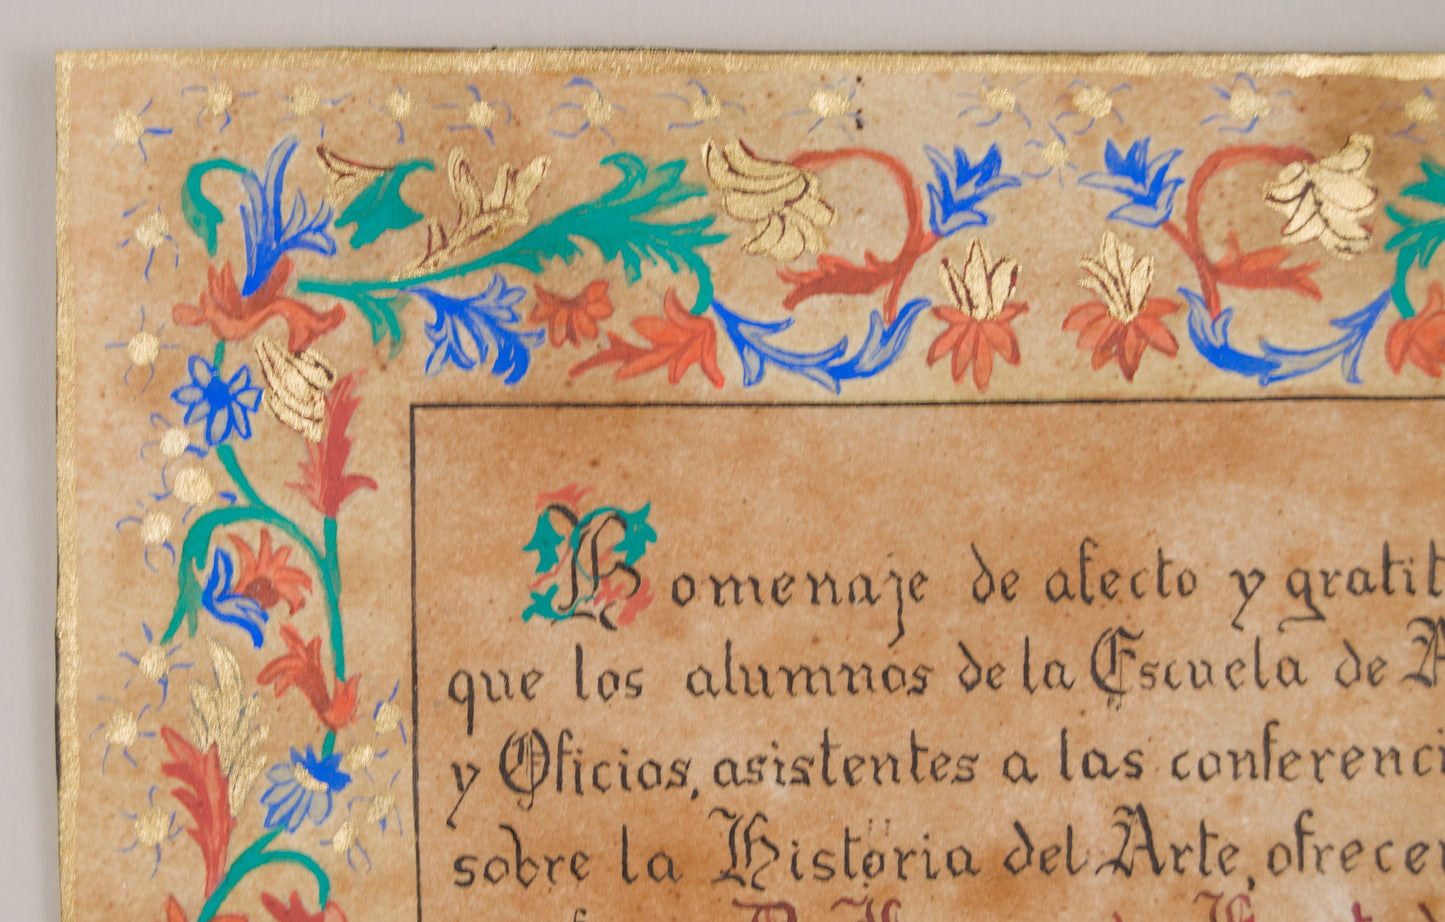 Homenaje de afecto y gratit
que los alumnos de la Escuela de A
y Oficios, asistentes a las conferenci
sobre la Historia del Arte, ofrecen